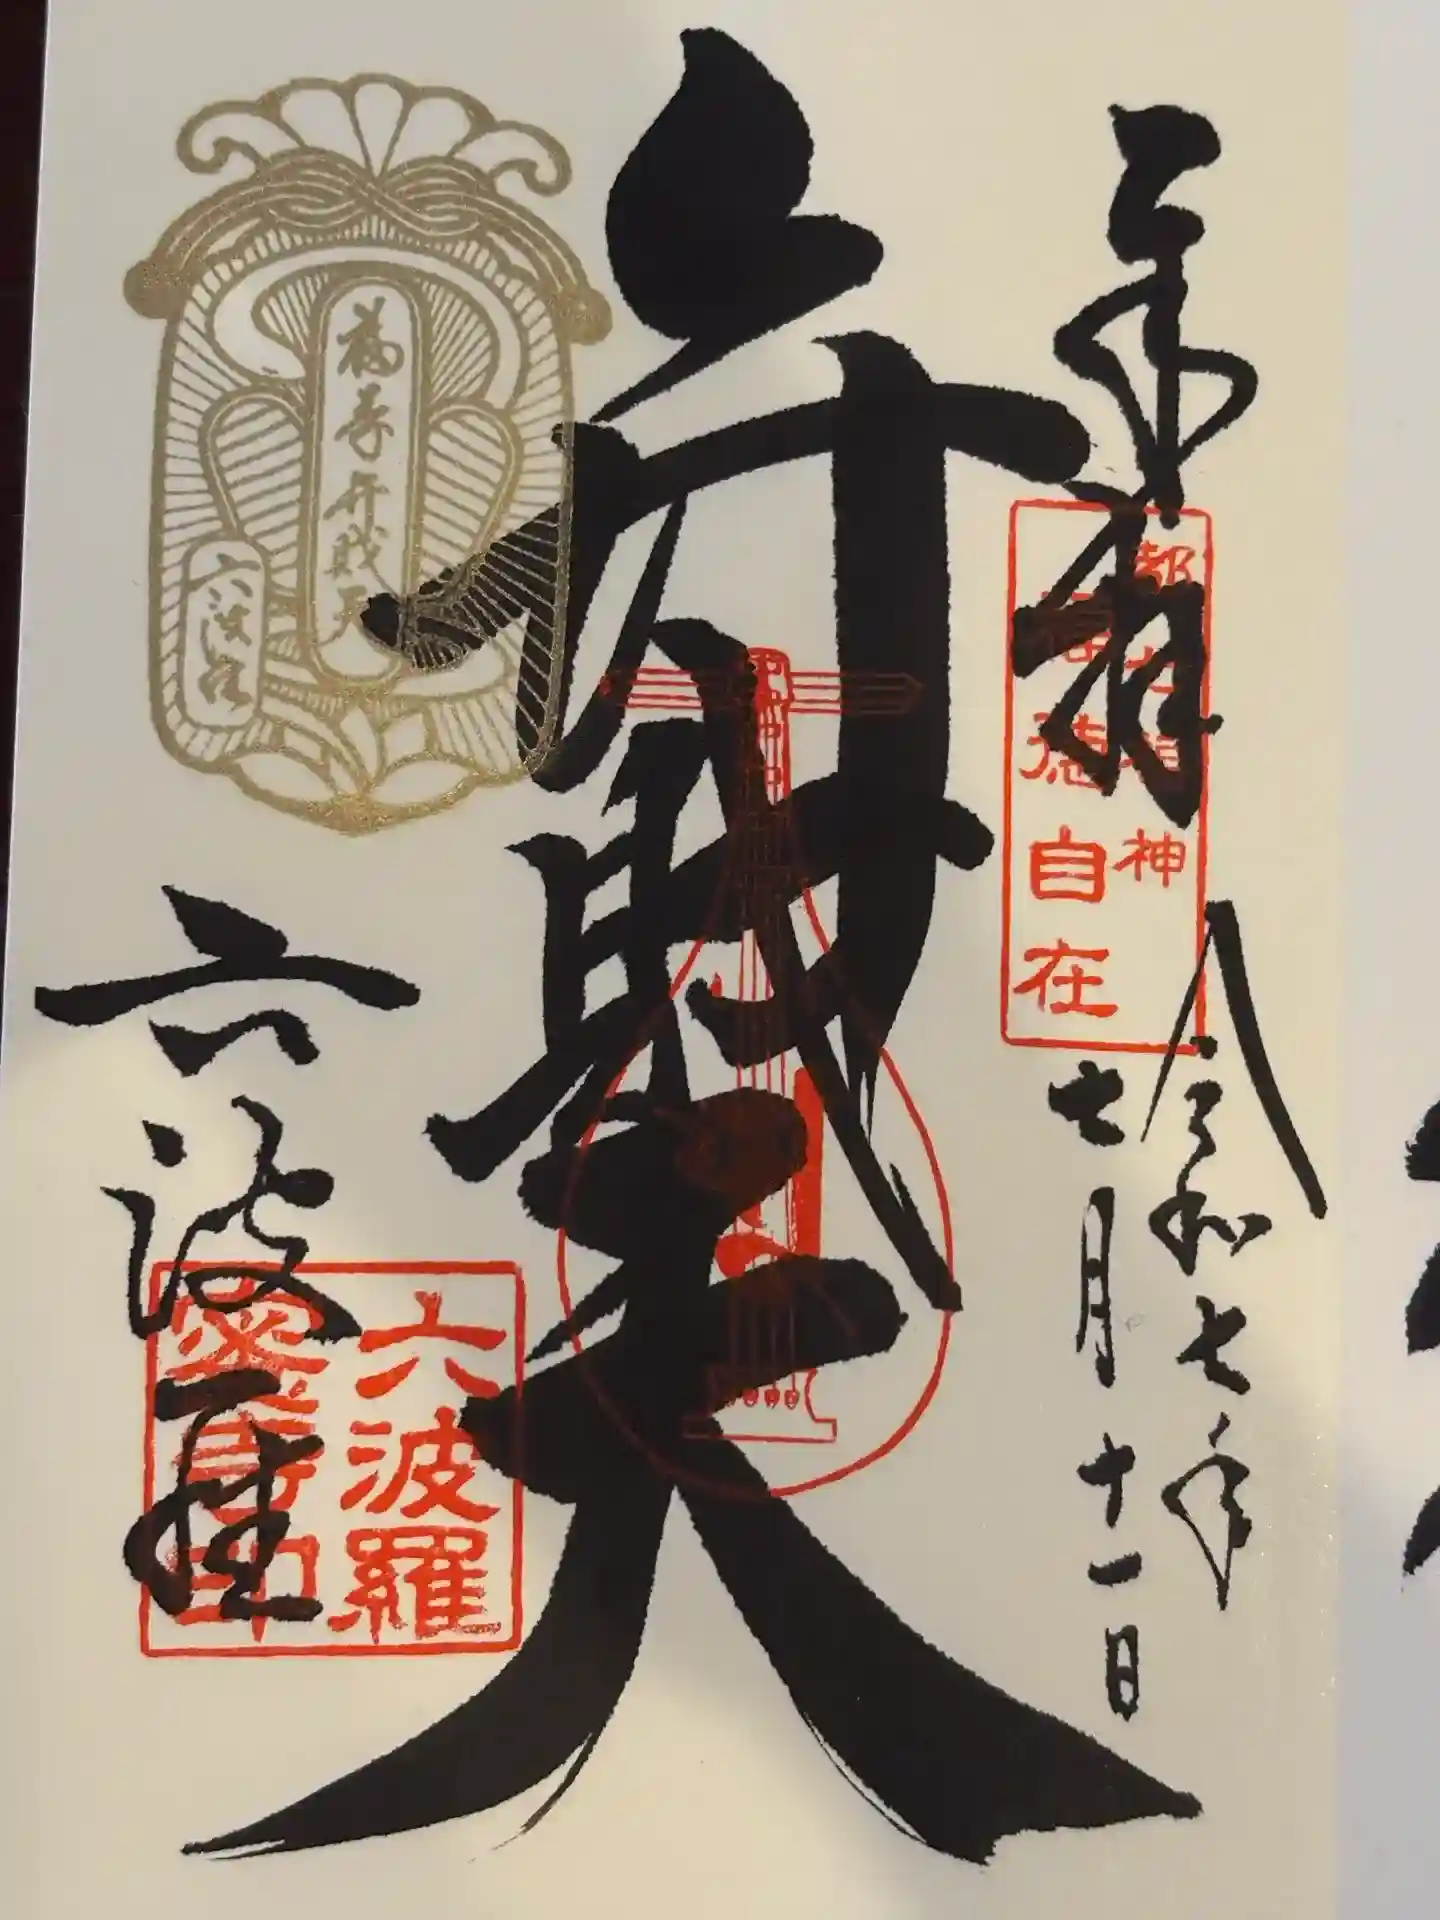 奉拝
令和七年
七月十一日
都七福神
福徳自在
弁財天
福寿弁財天
六波羅
六波羅
六波羅
蜜寺印